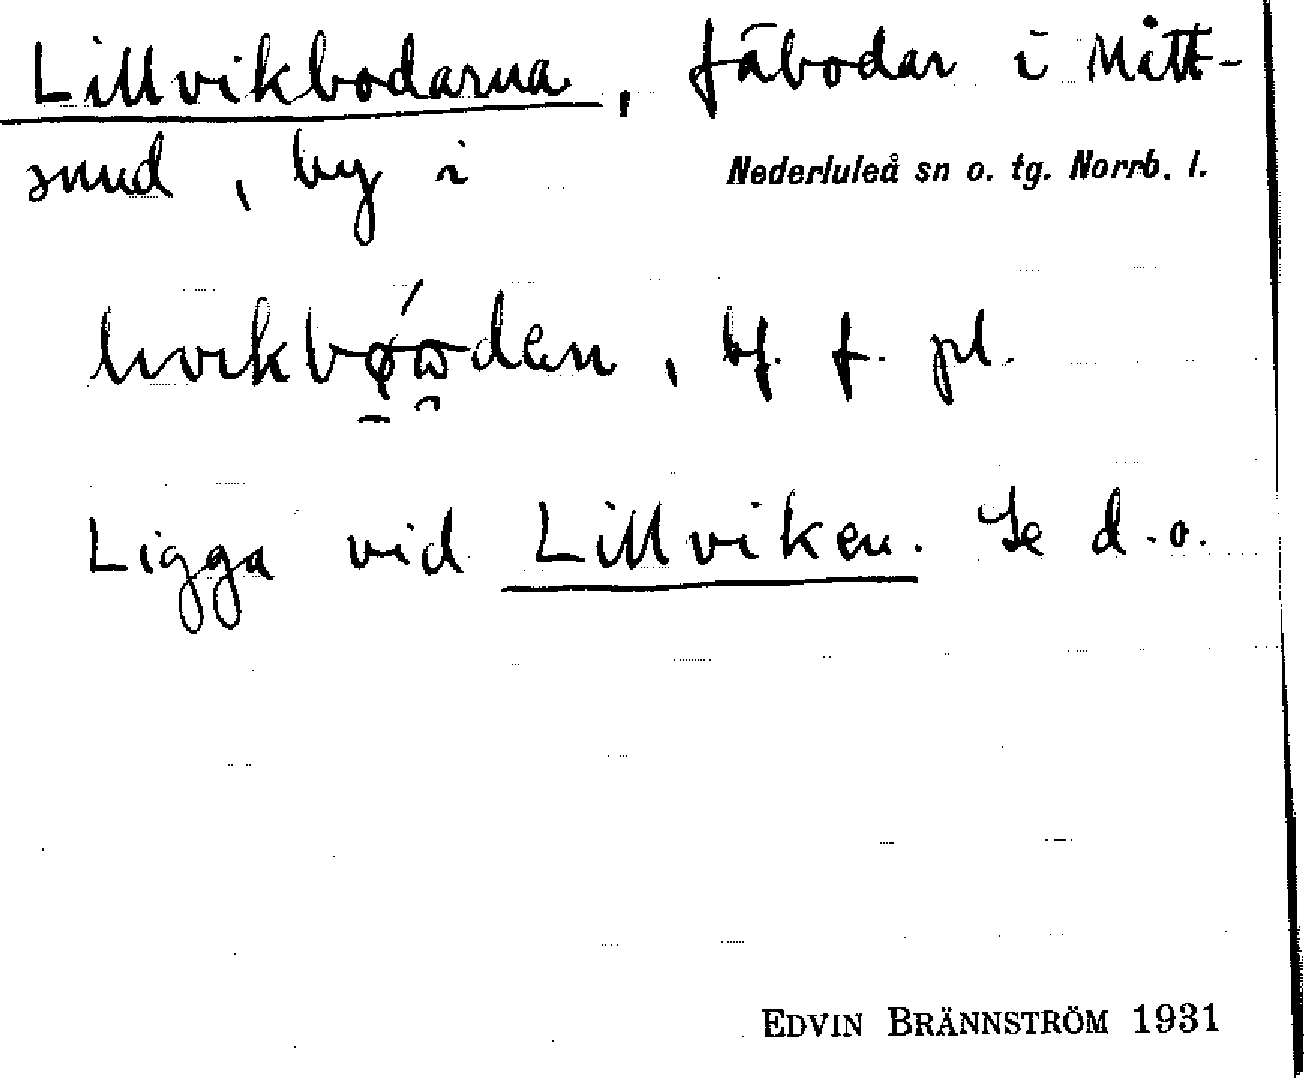 Lillvikbodarna, fäbodar i Mått-
sund, by i Nederluleå sn o. tg. Norrb. l.
bf. f. pl.
Ligga vid Lillviken. Se d.o.
EDVIN BRÄNNSTRÖM 1931